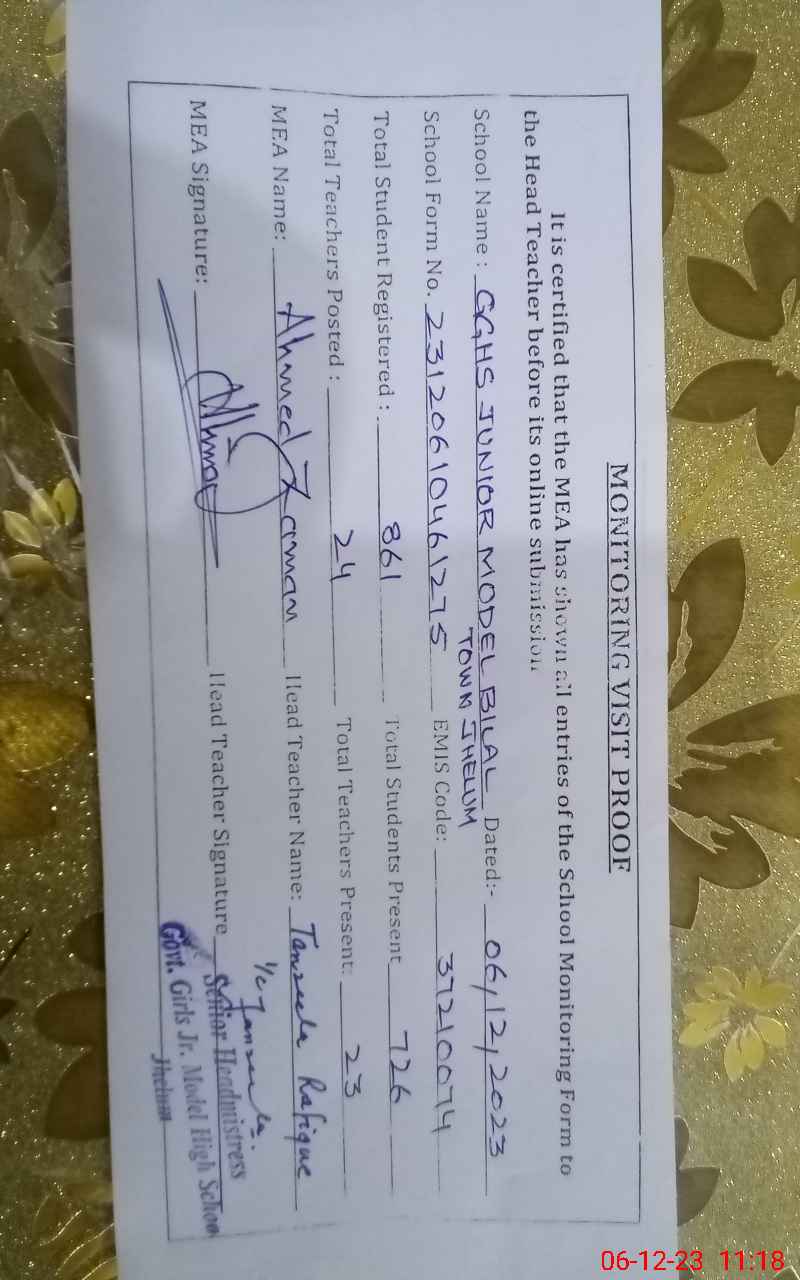 MONITORING VISIT PROOF
It is certified that the MEA has shown all entries of the School Monitoring Form to
the Head Teacher before its online submission
School Name : GGHS JUNIOR MODEL BILAL Dated:- 06/12/2023
TOWN JHELUM
School Form No. 23120610461275 EMIS Code: 37210074
Total Student Registered : 861 Total Students Present 726
Total Teachers Posted : 24 Total Teachers Present: 23
MEA Name: Ahmed Zaman Head Teacher Name: Tanzeela Rafique
MEA Signature: Head Teacher Signature
I/C Tanzeela
Senior Headmistress
Govt. Girls Jr. Model High School
Jhelum
06-12-23 11:18